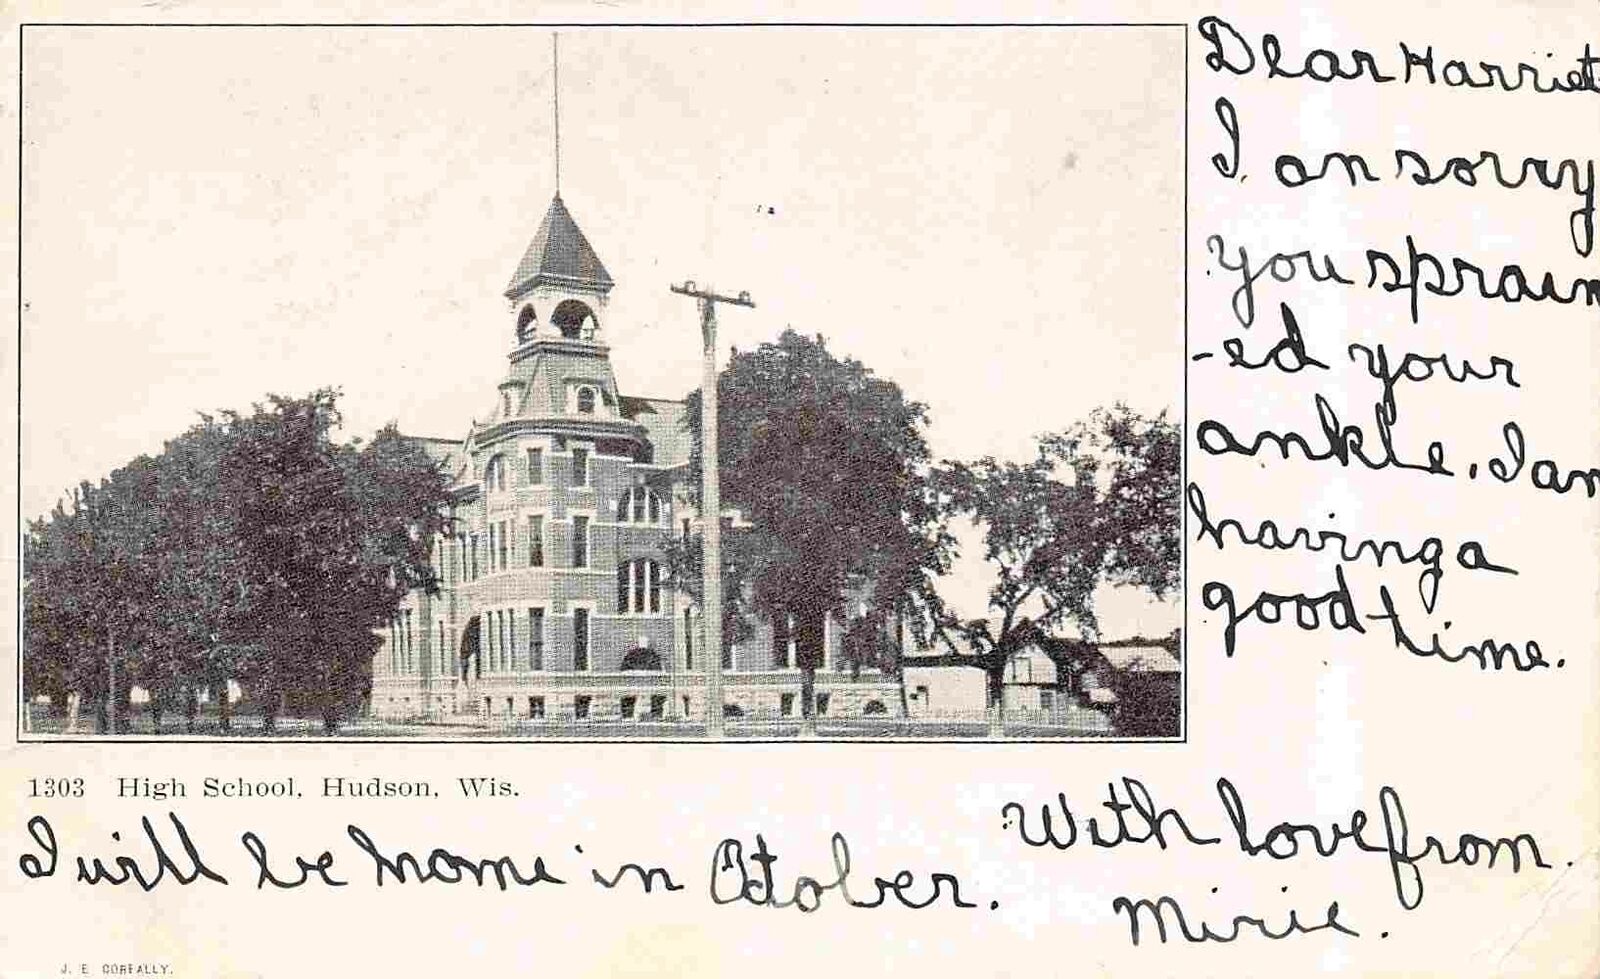 Dear Harriet
I am sorry
you sprain
-ed your
ankle. I am
having a
good time.
1303 High School, Hudson, Wis.
I will be home in October.
With love from.
Mirie.
J. E. CORFALLY.